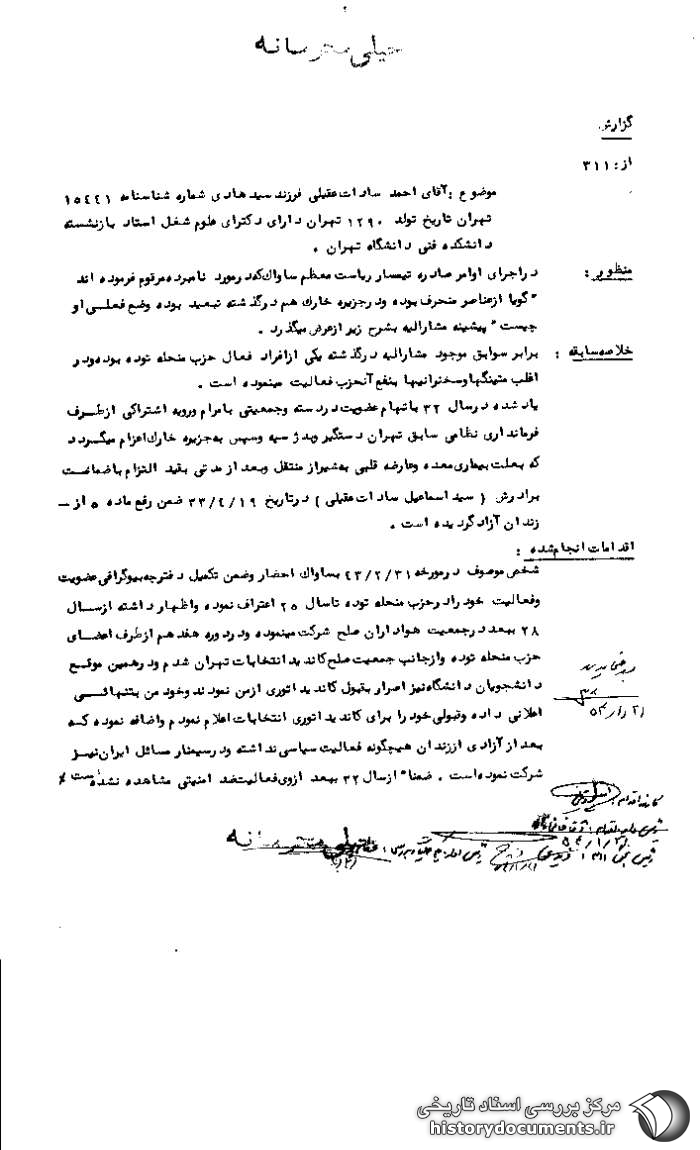 خیلی محترمانه
گزارش
از: ۳۱۱
موضوع: آقای احمد سادات عقیلی فرزند سیدهادی شماره شناسنامه ۱۵۴۲۱
تهران تاریخ تولد ۱۲۹۰ تهران دارای دکترای علوم شغل استاد بازنشسته
دانشکده فنی دانشگاه تهران .
منظور: در اجرای اوامر صادره تیمسار ریاست معظم ساواک که در مورد نامبرده مرقوم فرموده اند
"گویا از عناصر منحرف بوده و در جزیره خارک هم در گذشته تبعید بوده وضع فعلی او
چیست" پیشینه مشارالیه بشرح زیر از عرض میگذرد .
خلاصه سابقه: برابر سوابق موجود مشارالیه در گذشته یکی از افراد فعال حزب منحله توده بوده و در
اغلب متینگها و سخنرانیها بنفع آنحزب فعالیت مینموده است .
یاد شده در سال ۳۲ باتهام عضویت در دسته و جمعیتی با مرام و رویه اشتراکی از طرف
فرمانداری نظامی سابق تهران دستگیر و بدژ سپه و سپس به جزیره خارک اعزام میگردد
که بعلت بیماری معده و عارضه قلبی به شیراز منتقل و بعد از مدتی بقید التزام با ضمانت
برادرش (سید اسماعیل سادات عقیلی) در تاریخ ۳۳/۴/۱۹ ضمن رفع ماده ۵ از -
زندان آزاد گردیده است .
اقدامات انجام شده:
شخص موصوف در مورخه ۴۳/۲/۳۱ بساواک احضار و ضمن تکمیل دفترچه بیوگرافی عضویت
و فعالیت خود را در حزب منحله توده تا سال ۲۵ اعتراف نموده و اظهار داشته از سال
۲۸ ببعد در جمعیت هواداران صلح شرکت مینموده و در دوره هفدهم از طرف اعضای
حزب منحله توده و از جانب جمعیت صلح کاندید انتخابات تهران شدم و در همین موقع
دانشجویان دانشگاه نیز اصرار بقبول کاندیداتوری از من نمودند و خود من بتنهائی
اعلانی داده و قبولی خود را برای کاندیداتوری انتخابات اعلام نمودم و اضافه نموده که
بعد از آزادی از زندان هیچگونه فعالیت سیاسی نداشته و در سمینار مسائل ایران نیز
شرکت نموده است . ضمنا" از سال ۳۲ ببعد از وی فعالیت ضد امنیتی مشاهده نشده است
کارمند اقدام:
خیلی محترمانه
مرکز بررسی اسناد تاریخی
historydocuments.ir